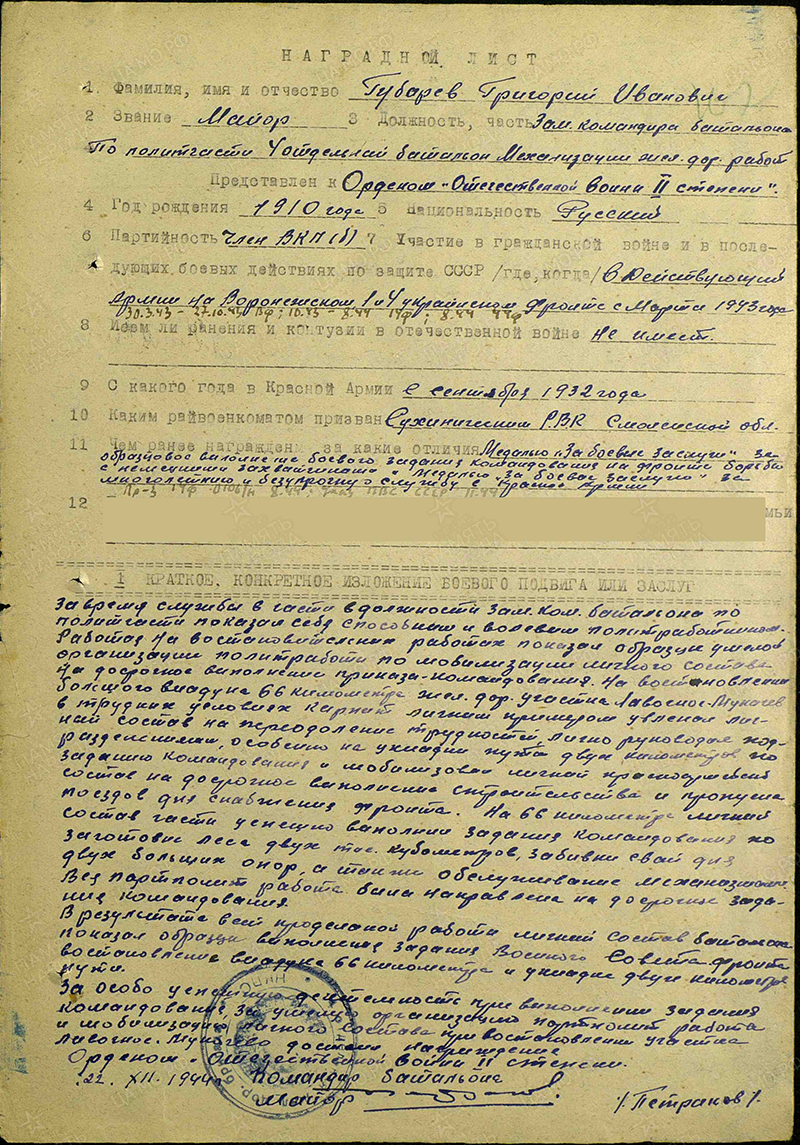 НАГРАДНОЙ ЛИСТ
1. Фамилия, имя и отчество Губарев Григорий Иванович
2 Звание Майор 3 Должность, часть Зам. командира батальона
По политчасти 4 отдельный батальон Механизации жел. дор. работ
Представлен к Орденом "Отечественной Войны II степени".
4 Год рождения 1910 года 5 Национальность Русский
6 Партийность Член ВКП(б) 7 Участие в гражданской войне и в после-
дующих боевых действиях по защите СССР /где, когда/ В Действующий
Армии на Воронежском 1 и 4 украинском Фронте с Марта 1943 года
30.3.43 - 27.10.43 ВФ; 10.43 - 8.44 1УФ; 8.44 4УФ
8 Имеем ли ранения и контузии в отечественной войне не имеет.
9 С какого года в Красной Армии С сентября 1932 года
10 Каким райвоенкоматом призван Сухиническим РВК Смоленской обл.
11 Чем ранее награжден, за какие отличия Медалью "За боевые заслуги" за
образцовое выполнение боевого задания командования на фронте борьбы
с немецкими захватчиками и Медалью "за боевые заслуги" за
многолетнию и безупречную службу в Красной Армии
Пр-з 1УФ 0106/н 8.44; Указ ПВС СССР 11.44
12
мьи
1 КРАТКОЕ, КОНКРЕТНОЕ ИЗЛОЖЕНИЕ БОЕВОГО ПОДВИГА ИЛИ ЗАСЛУГ
За время службы в части в должности Зам. Ком. батальона по
политчасти показал себя способным и волевым политработником.
Работая на востановительных работах показал образцы умелой
организации политработы по мобилизации личного состава
на досрочное выполнение приказа командования. На востановлении
большого виадука 66 километра жел. дор. участка Лавочное-Мукачев
в трудных условиях Карпат личным примером увлекал лич-
ный состав на переодоление трудностей лично руководил под-
разделениями, особенно на укладки пути двух километров по
заданию командования и мобилизовал личный красноармейский
состав на досрочное выполнение строительства и пропуска
поездов для снабжения фронта. На 66 километре личный
состав части успешно выполнил задания командования по
заготовке леса двух тыс. кубометров, забивки свай для
двух больших опор, а также обслуживание механизмами.
Вся партполит работа была направлена на досрочное зада-
ния командования.
В результате всей проделаной работы личный состав батальона
показал образцы выполнения задания Военного Совета фронта
востановление виадука 66 километра и укладке двух километров
пути.
За особо успешную деятельность при выполнении задания
командования, за умелую организацию партполит работы
и мобилизацию личного состава при востановлении участка
Лавочное-Мукачево достоин награждение
Орденом "Отечественной Войны II степени.
22. XII. 1944г. Командир батальона
Майор /Петраков/.